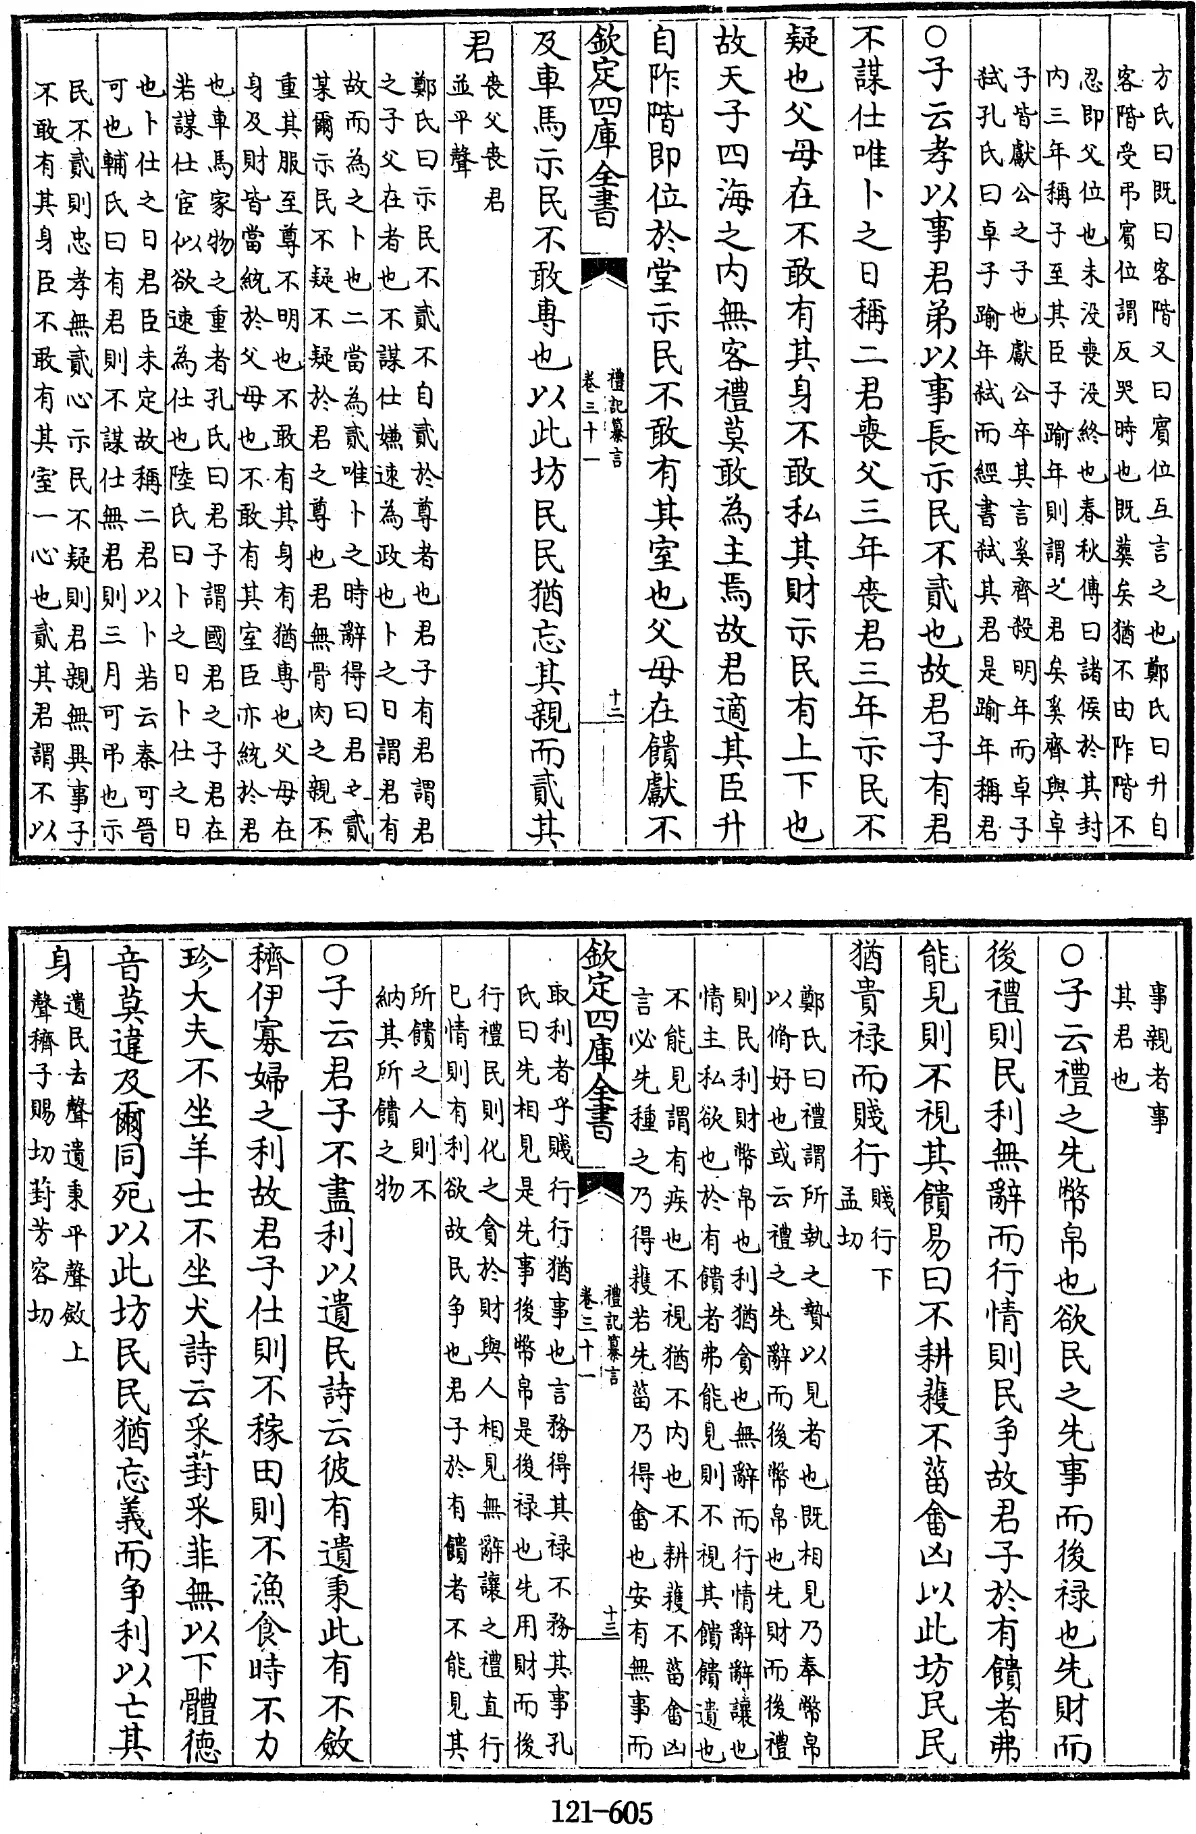 方氏曰既曰客階又曰賓位互言之也鄭氏曰升自
客階受弔賓位謂反哭時也既葬矣猶不由阼階不
忍即父位也未没喪没終也春秋傳曰諸侯於其封
内三年稱子至其臣子踰年則謂之君矣奚齊與卓
子皆獻公之子也獻公卒其言奚齊殺明年而卓子
弑孔氏曰卓子踰年弑而經書弑其君是踰年稱君
〇子云孝以事君弟以事長示民不貳也故君子有君
不謀仕唯卜之日稱二君喪父三年喪君三年示民不
疑也父母在不敢有其身不敢私其財示民有上下也
故天子四海之内無客禮莫敢為主焉故君適其臣升
自阼階即位於堂示民不敢有其室也父母在饋獻不
欽定四庫全書
禮記纂言
卷三十一
十二
及車馬示民不敢專也以此坊民民猶忘其親而貳其
君
喪父喪君
並平聲
鄭氏曰示民不貳不自貳於尊者也君子有君謂君
之子父在者也不謀仕嫌速為政也卜之日謂君有
故而為之卜也二當為貳唯卜之時辭得曰君之貳
某爾示民不疑不疑於君之尊也君無骨肉之親不
重其服至尊不明也不敢有其身有猶專也父母在
身及財皆當統於父母也不敢有其室臣亦統於君
也車馬家物之重者孔氏曰君子謂國君之子君在
若謀仕宦似欲速為仕也陸氏曰卜之日卜仕之日
也卜仕之日君臣未定故稱二君以卜若云秦可晉
可也輔氏曰有君則不謀仕無君則三月可弔也示
民不貳則忠孝無貳心示民不疑則君親無異事子
不敢有其身臣不敢有其室一心也貳其君謂不以
事親者事
其君也
〇子云禮之先幣帛也欲民之先事而後禄也先財而
後禮則民利無辭而行情則民争故君子於有饋者弗
能見則不視其饋易曰不耕穫不菑畬凶以此坊民民
猶貴禄而賤行
賤行下
孟切
鄭氏曰禮謂所執之贄以見者也既相見乃奉幣帛
以脩好也或云禮之先辭而後幣帛也先財而後禮
則民利財幣帛也利猶貪也無辭而行情辭辭讓也
情主私欲也於有饋者弗能見則不視其饋饋遺也
不能見謂有疾也不視猶不内也不耕穫不菑畬凶
言必先種之乃得穫若先菑乃得畬也安有無事而
欽定四庫全書
禮記纂言
卷三十一
十三
取利者乎賤行行猶事也言務得其禄不務其事孔
氏曰先相見是先事後幣帛是後禄也先用財而後
行禮民則化之貪於財與人相見無辭讓之禮直行
己情則有利欲故民争也君子於有饋者不能見其
所饋之人則不
納其所饋之物
〇子云君子不盡利以遺民詩云彼有遺秉此有不斂
穧伊寡婦之利故君子仕則不稼田則不漁食時不力
珍大夫不坐羊士不坐犬詩云采葑采菲無以下體德
音莫違及爾同死以此坊民民猶忘義而争利以亡其
身
遺民去聲遺秉平聲斂上
聲穧子賜切葑芳容切
121-605